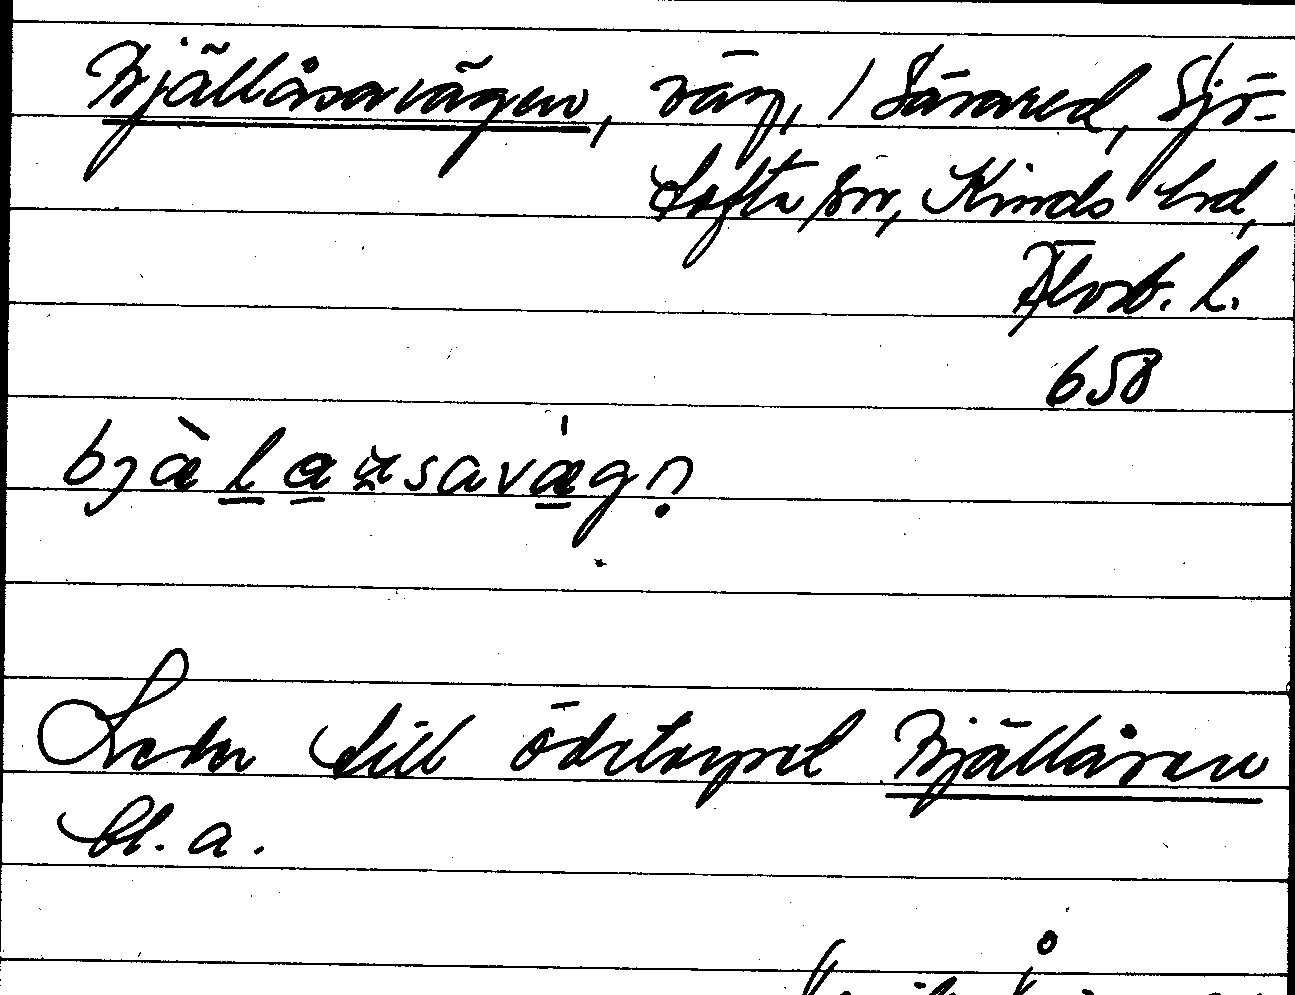 Bjällåsavägen, väg, / Särared, Sjö-
tofta sn, Kinds hd,
Älvsb. l.
658
Leder till ödetorpet Bjällåsen
bl. a.